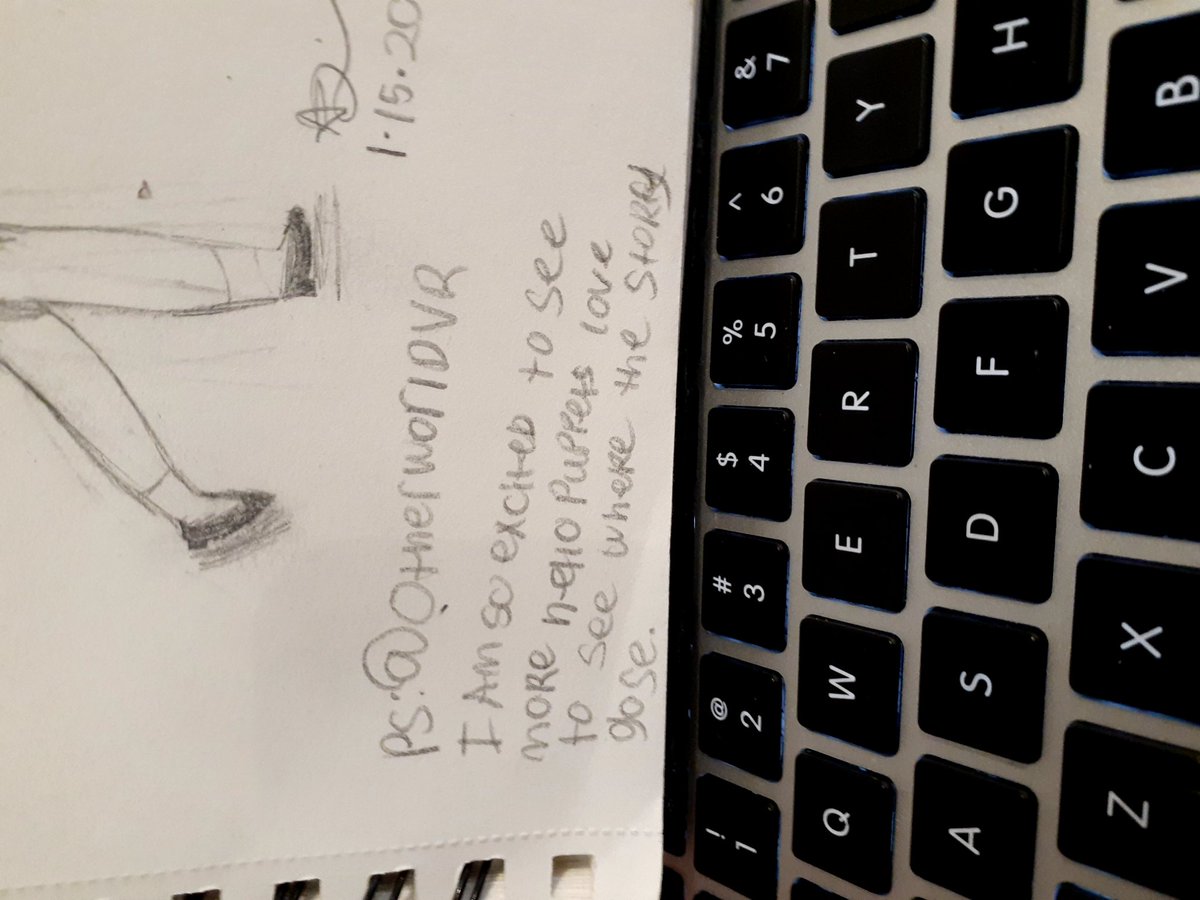 1.15.20
PS:@OtherworlDVR
I Am so excited to see
more hello Puppets love
to see where the storry
gose.
! @ # $ % ^ &
1 2 3 4 5 6 7
Q W E R T Y
A S D F G H
Z X C V B